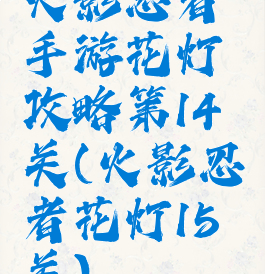 火影忍者
手游花灯
攻略第14
关(火影忍
者花灯15
关)